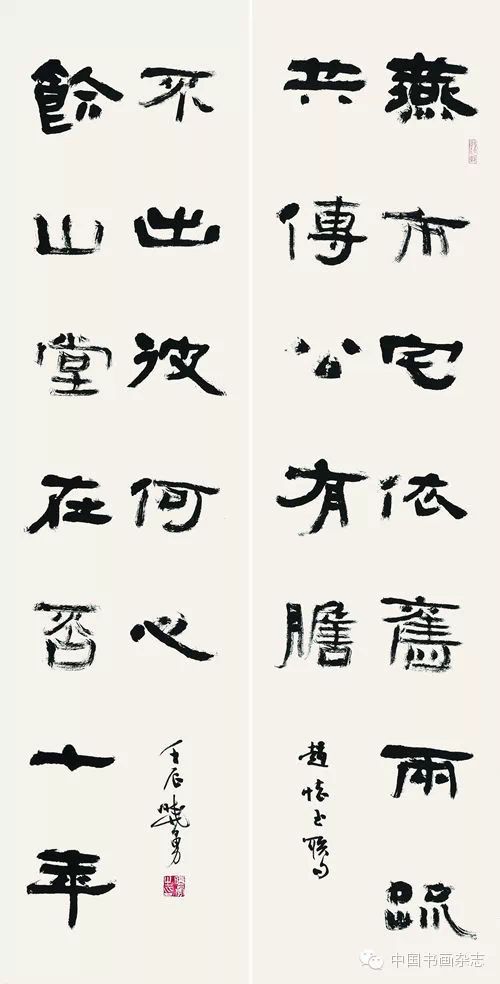 燕市宅依舊兩疏
共傳公有膽
趙懷玉聯句
鈐山堂在否十年
不出彼何心
壬辰曉勇
中国书画杂志